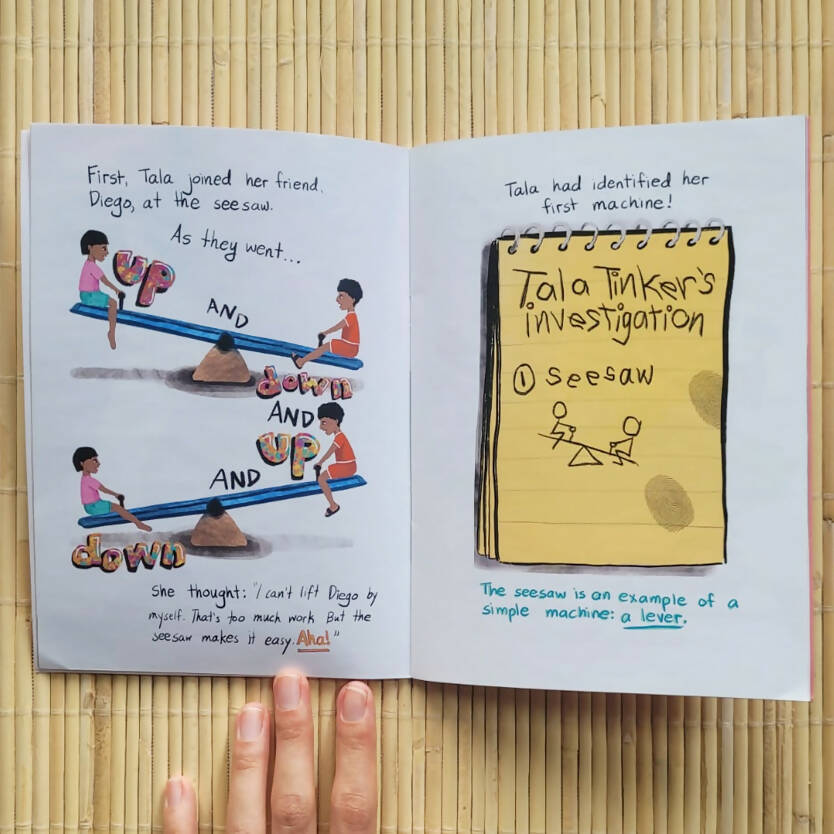 First, Tala joined her friend,
Diego, at the seesaw.
As they went...
up
AND
down
AND
up
AND
down
She thought: "I can't lift Diego by
myself. That's too much work But the
seesaw makes it easy. Aha!"
Tala had identified her
first machine!
Tala Tinker's
investigation
① seesaw
The seesaw is an example of a
simple machine: a lever.